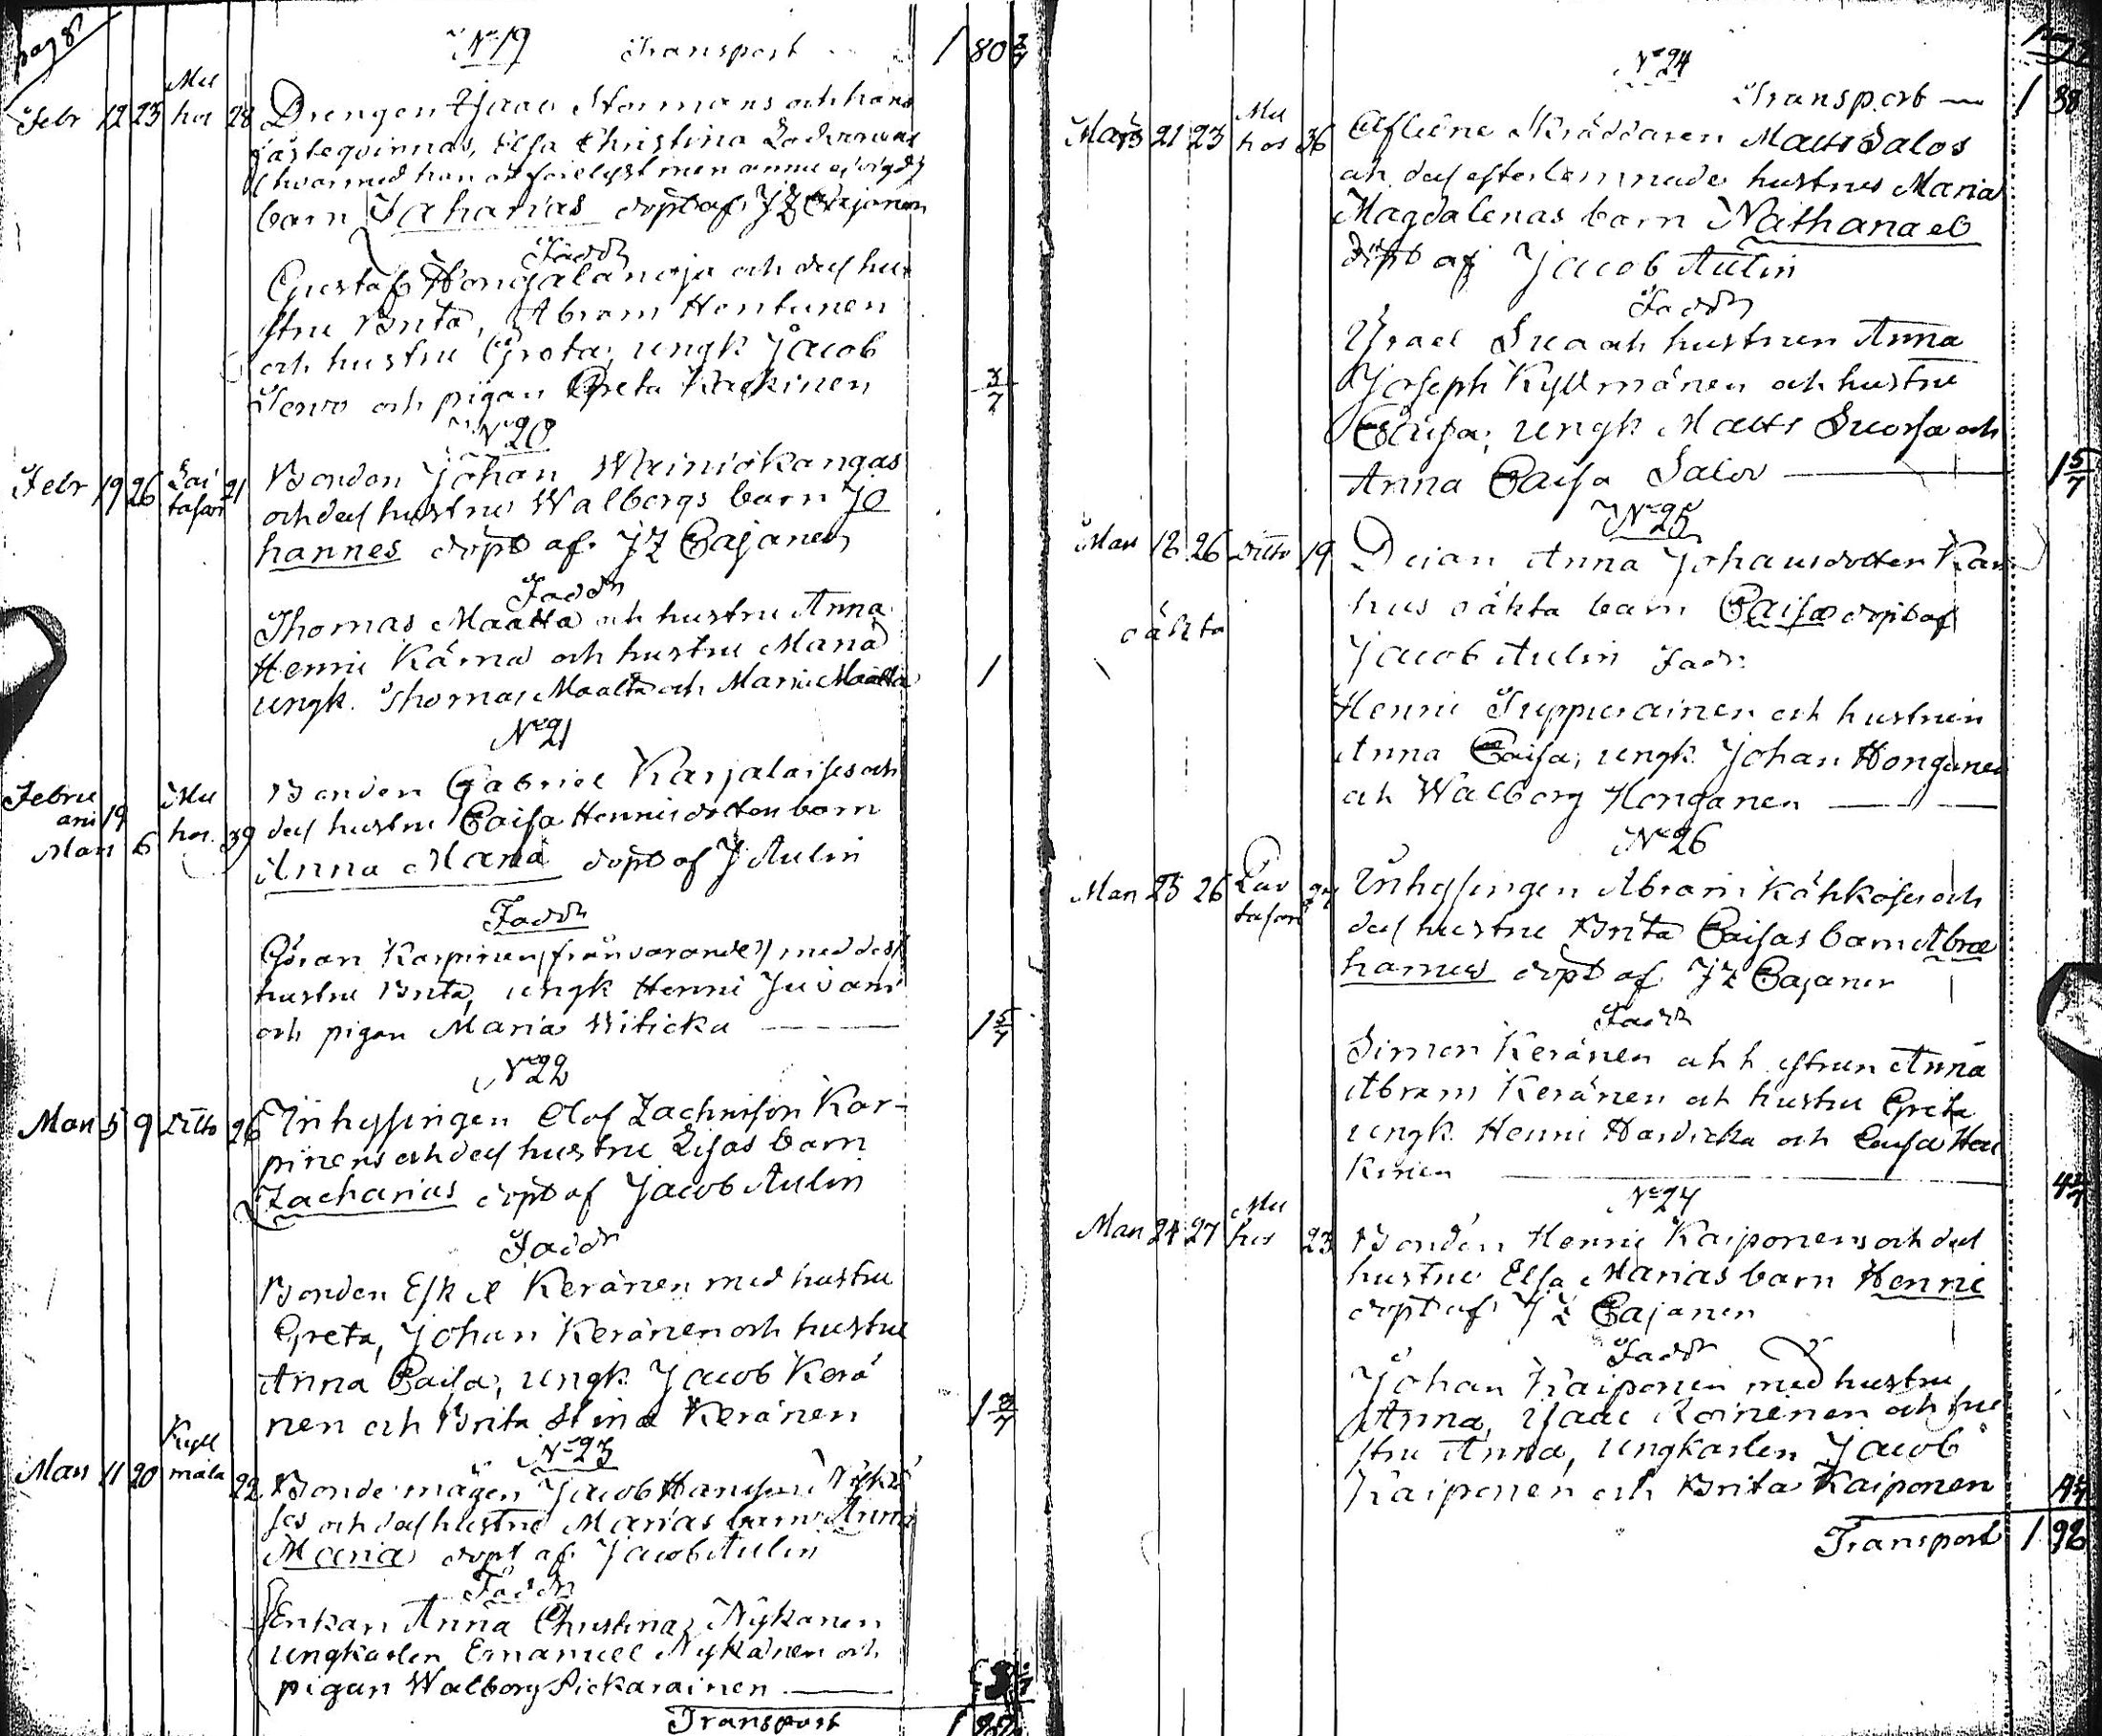 pag 8
No 19 Transport 1 80
Febr 12 23 Mu
hos 28 Drengen Isaac och hans
fästeqvinnas, Elsa Christina
hvarmed han är förelyst men annu ej vigd
barn Zaharias döpt af J Z Cajanen
Faddr
Gustaf Hongalanoja och dess hu
stru Brita, Abram Hontunen
och hustru Greta; ungk Jacob
Servo och pigan Greta
No 20
Febr 19 26 21 Bonden Johan Wainiökangas
och dess hustrus Walborgs barn Jo
hannes döpt af J Z Cajanen
Faddr
Thomas Maatta och hustru Anna
Henric Kärnä och hustru Maria
ungk. Thomas Maatta och Maria Maatta 1
No 21
Febru
arii 19
Mars 6 Mu
hos 39
Bonden Gabriel Karjalaises och
dess hustru Caisa Henricsdotters barn
Anna Maria döpt af J Aulin
Faddr
Göran Karpinen (frånvarande) med dess
hustru Brita, ungk Henric Juvani
och pigan Maria 1 5/7
No 22
Mars 5 9 Ditto 26 Inhysingen Olof Zachrisson Kar-
pinens och dess hustru Lisas barn
Zacharias döpt af Jacob Aulin
Faddr
Bonden Eskil Keränen med hustru
Greta, Johan Keränen och hustru
Anna Caisa; ungk Jacob Kerä
nen och Brita Stina Keränen
No 23
Mars 11 20 Kyll
mälä 22 Bondemågen Jacob Hansson Nykä
ses och dess hustru Marias barn Anna
Maria döpt af Jacob Aulin
Faddr
Enkan Anna Christina Nykänen
ungkarlen Emanuel Nykänen och
pigan Walborg Pickarainen
Transport
No 24
Transport 1 88
Mars 21 23 Mu
hos 36 Aflidne Skräddaren Matts Salos
och dess efterlemnade hustrus Maria
Magdalenas barn Nathanael
döpt af Jacob Aulin
Faddr
Israel Sua och hustrun Anna
Joseph Kyllmänen och hustru
Caisa; ungk Matts Suorsa och
Anna Caisa Salov 1 5/7
No 25
Mars 18 26 Ditto 19
oäkta
Anna Johansdotter
hus oäkta barn Caisa döpt af
Jacob Aulin Fadr
Henric Seppurainen och hustrun
Anna Caisa; ungk. Johan Honganen
och Walborg Honganen
No 26
Mars 25 26 Inhysingen Abram Kähköses och
dess hustru Brita Caisas barn Abra
hamus döpt af J Z Cajanen
Faddr
Simon Keränen och hustrun Anna
Abram Keränen och hustru Greta
ungk. Henric Hardicka och Caisa Hei
kinen
No 27
Mars 24 27 Mu
hos 23 Bonden Henric Kaiponens och dess
hustrus Elsa Marias barn Henric
döpt af J Z Cajanen
Faddr
Johan Kaiponen med hustru
Anna, Isaac Roinenen och hu
stru Anna, ungkarlen Jacob
Kaiponen och Brita Kaiponen
Transport 1 98